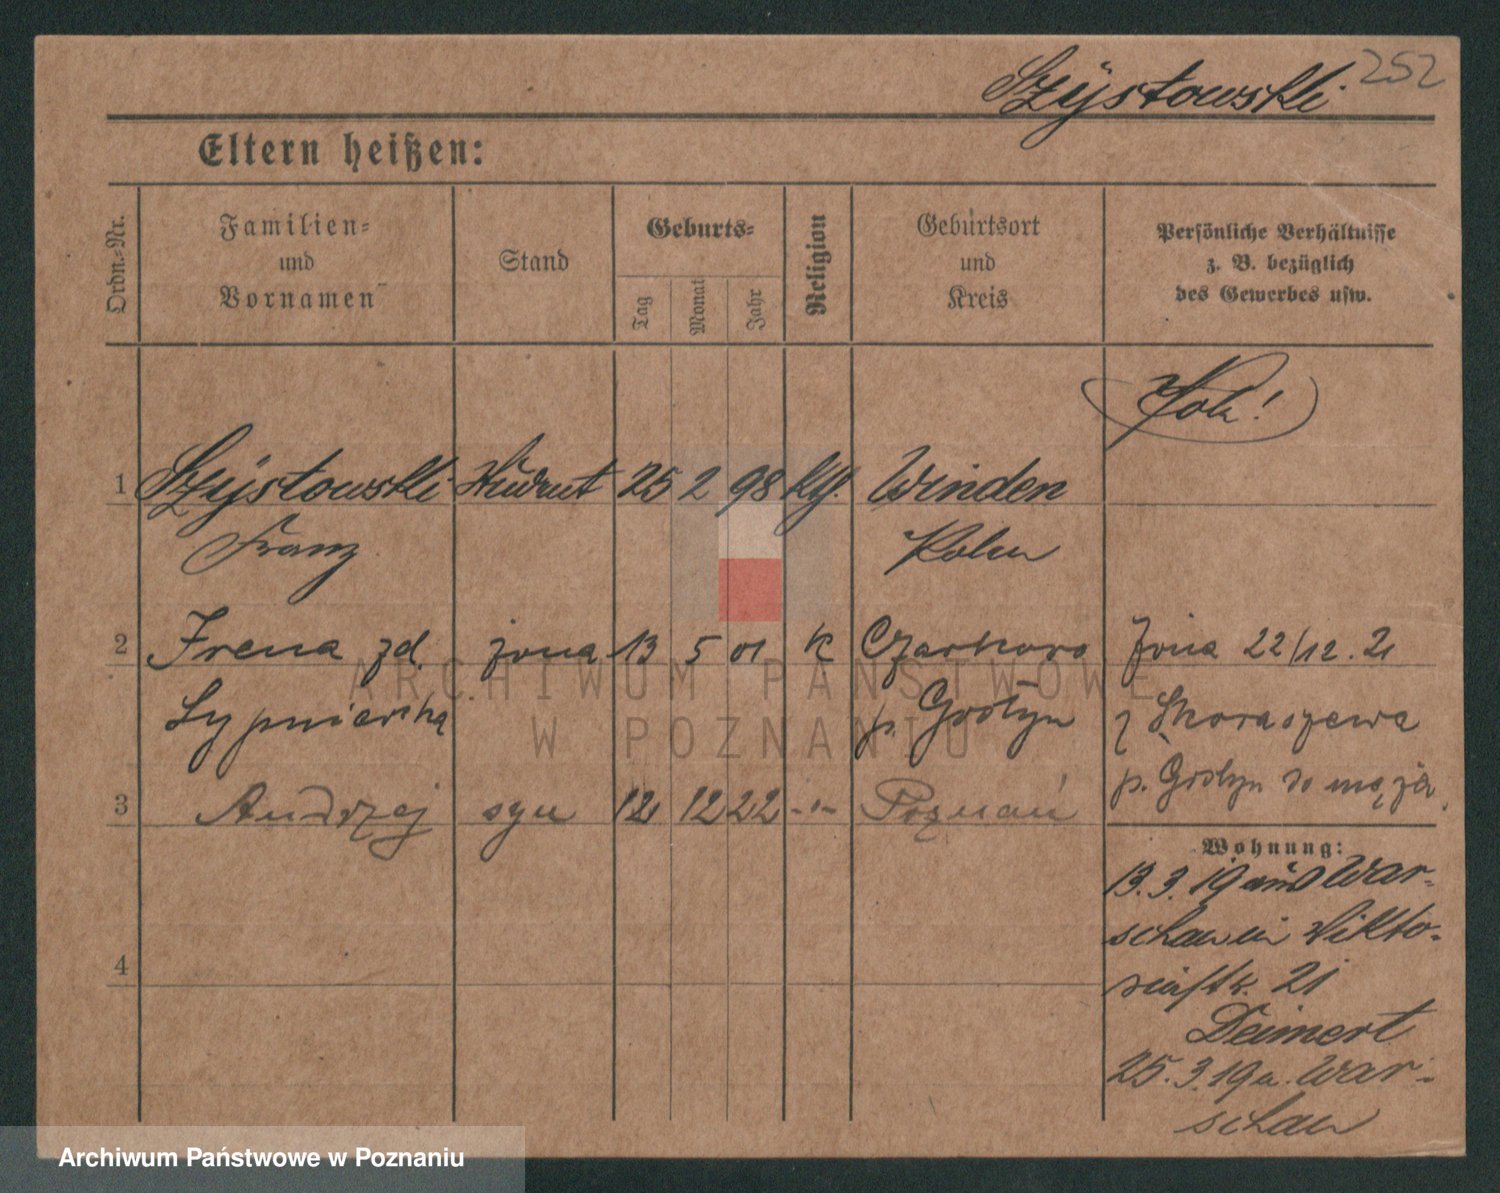 252
Szÿstowski
Eltern heißen:
Ordn.-Nr.
Familien-
und
Vornamen
Stand
Geburts-
Tag
Monat
Jahr
Religion
Geburtsort
und
Kreis
Persönliche Verhältnisse
z. B. bezüglich
des Gewerbes usw.
1 Szÿstowski 25 2 98 kth. Winden
Franz Kolen
2 Irena zd. żona 13 5 01 k Czarkowo żona 22/12. 21
p. Gostyn z Skoraszewa
p. Gostyn do męża.
3 Andrzej syn 12 12 22 -"- Poznań
Wohnung:
13. 3. 19 aus War-
schau in Vikto-
riastr. 21
Deimert
25. 3. 19 a. War-
schau
4
ARCHIWUM PAŃSTWOWE
W POZNANIU
Archiwum Państwowe w Poznaniu